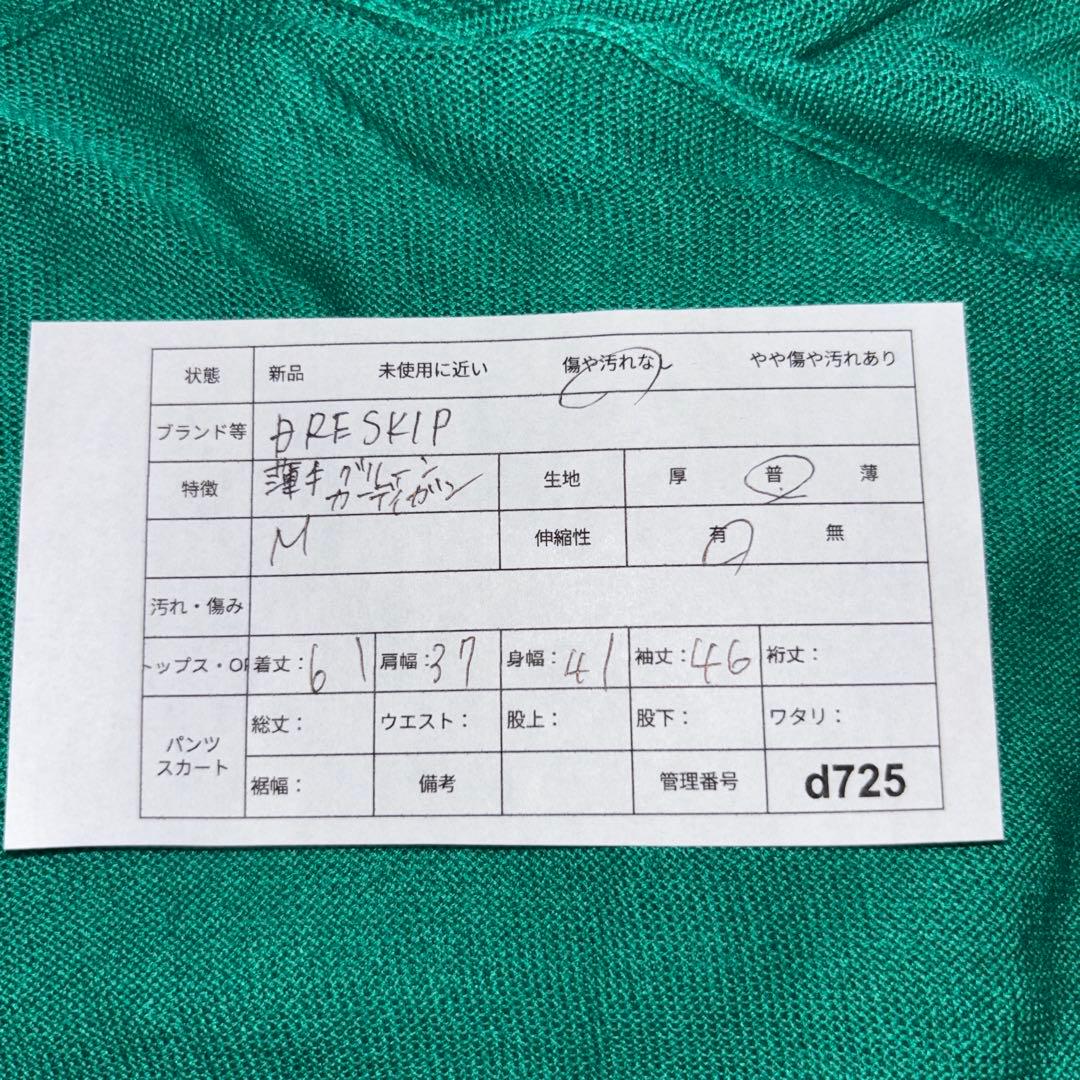 状態 新品 未使用に近い 傷や汚れなし やや傷や汚れあり
ブランド等 DRESKIP
特徴 薄手 グリーン 生地 厚 普 薄
カーディガン
M 伸縮性 有 無
汚れ・傷み
トップス・OP 着丈：61 肩幅：37 身幅：41 袖丈：46 裄丈：
パンツ スカート 総丈： ウエスト： 股上： 股下： ワタリ：
裾幅： 備考 管理番号 d725